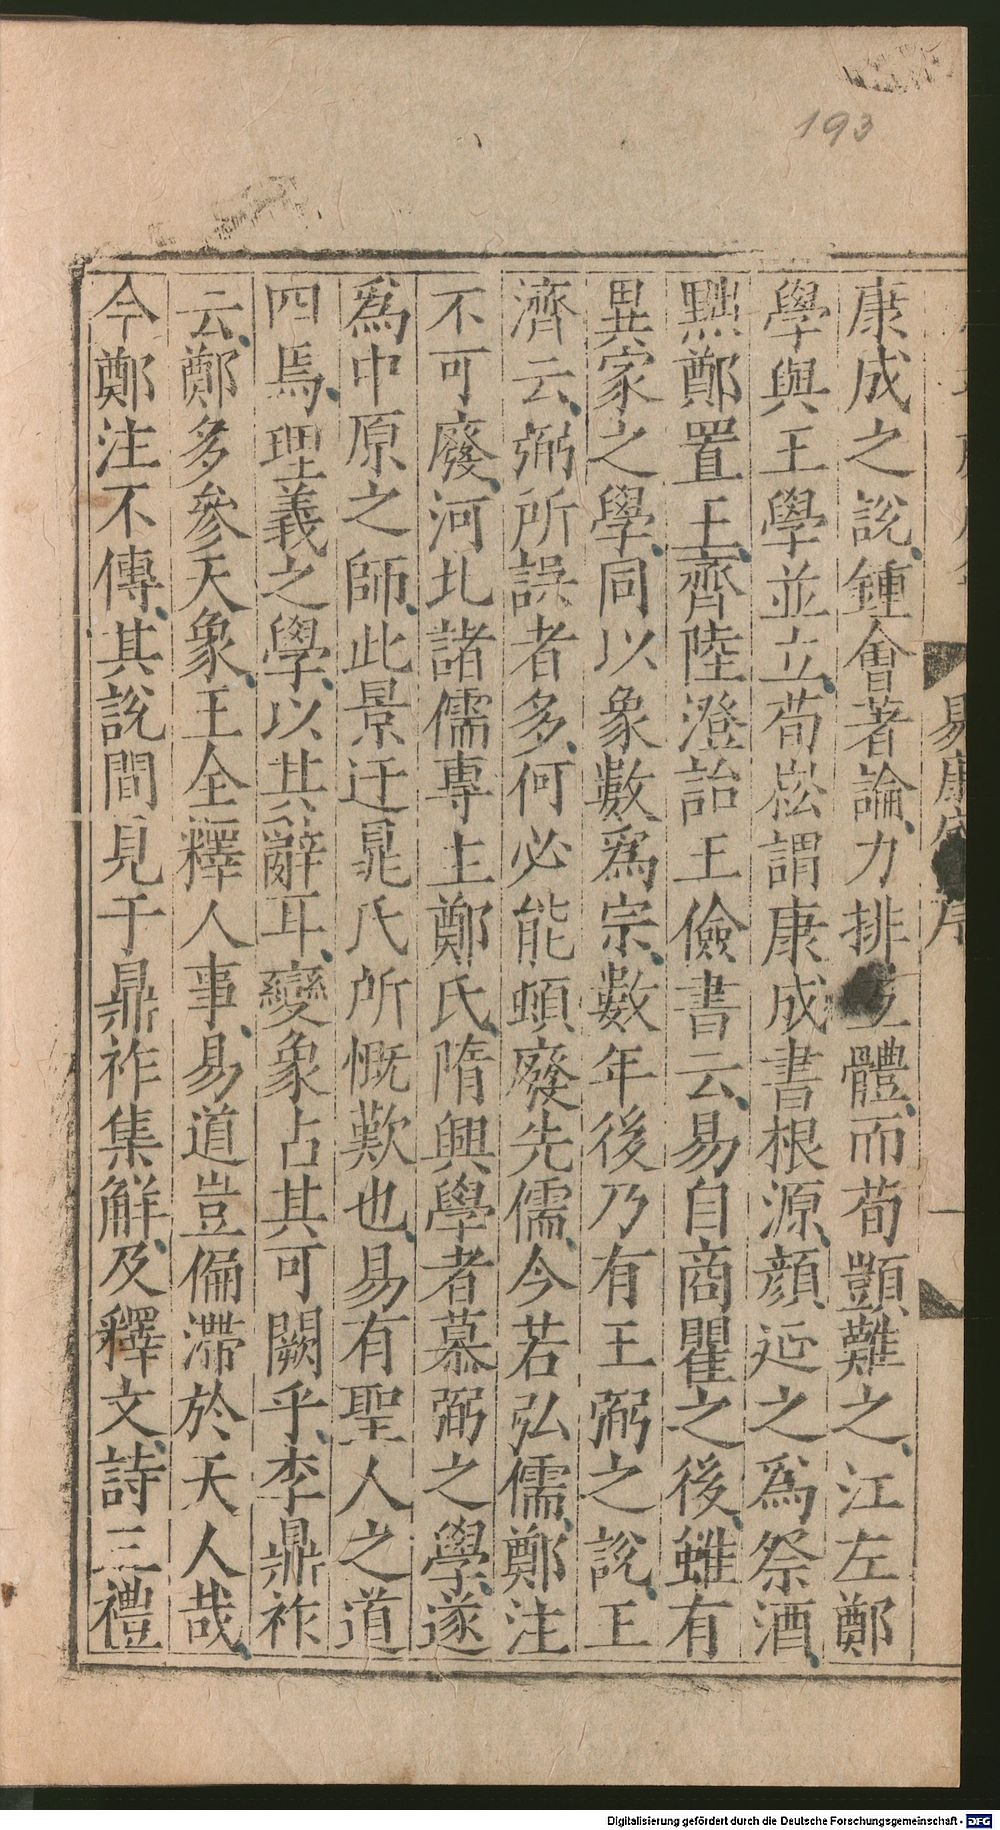 193
康成之說鍾會著論力排互體而荀顗難之江左鄭
學與王學並立荀崧謂康成書根源顏延之爲祭酒
黜鄭置王齊陸澄詒王儉書云易自商瞿之後雖有
異家之學同以象數爲宗數年後乃有王弼之說王
濟云弼所誤者多何必能頓廢先儒今若弘儒鄭注
不可廢河北諸儒專主鄭氏隋興學者慕弼之學遂
爲中原之師此景迂鼂氏所慨歎也易有聖人之道
四焉理義之學以其辭耳變象占其可闕乎李鼎祚
云鄭多參天象王全釋人事易道豈偏滯於天人哉
今鄭注不傳其說間見于鼎祚集解及釋文詩三禮
易康成 序
一
Digitalisierung gefördert durch die Deutsche Forschungsgemeinschaft - DFG